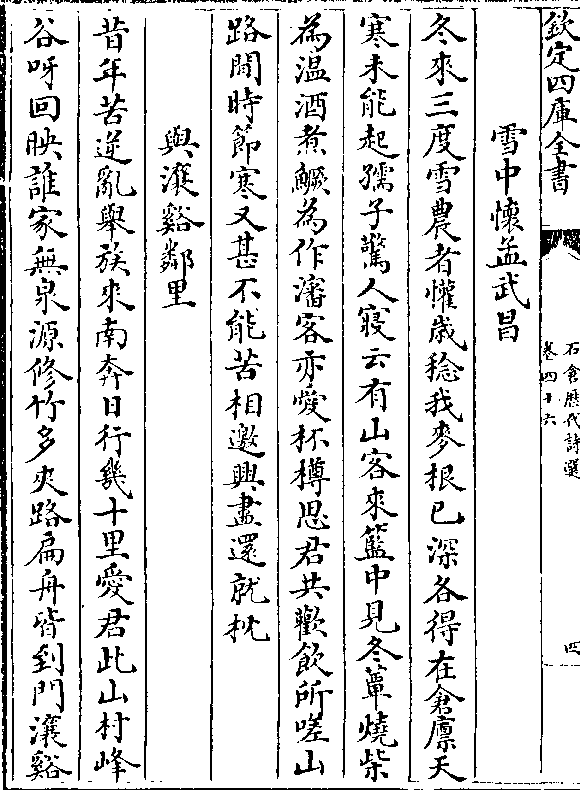 欽定四庫全書
石倉歷代詩選
卷四十六
四
雪中懷孟武昌
冬來三度雪農者懽歲稔我麥根已深各得在倉廪天
寒未能起孺子驚人寢云有山客來籃中見冬蕈燒柴
為温酒煮鱖為作瀋客亦愛杯樽思君共歡飲所嗟山
路間時節寒又甚不能苦相邀興盡還就枕
與瀼谿鄰里
昔年苦逆亂舉族來南奔日行幾十里愛君此山村峰
谷呀回映誰家無泉源修竹多夾路扁舟皆到門瀼谿